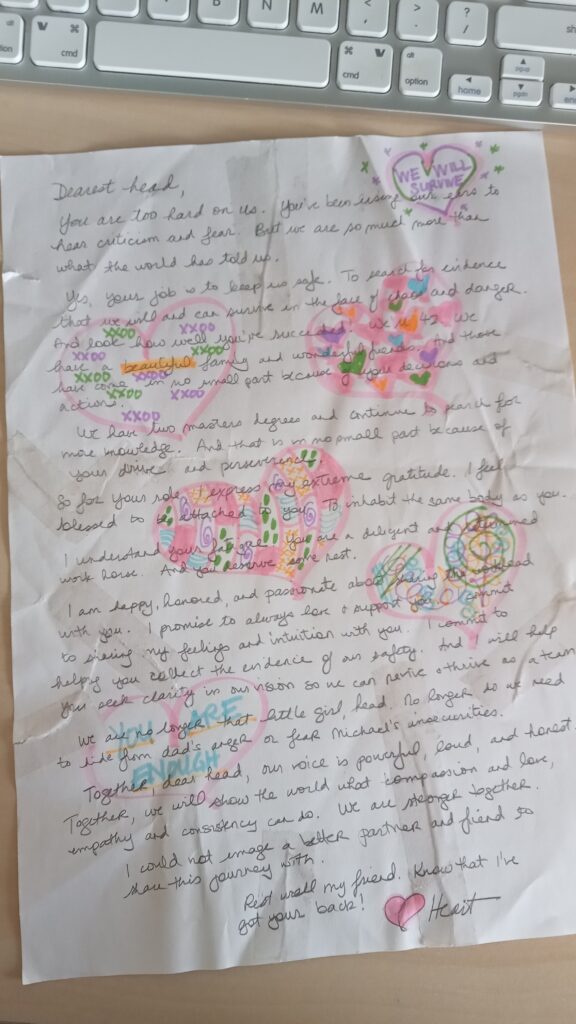 B N M < , > . ? /
⌘ cmd
⌘ cmd alt option home pgup pgdn
WE WILL
SURVIVE
Dearest head,
You are too hard on us. You've been using our ears to
hear criticism and fear. But we are so much more than
what the world has told us.
Yes, your job is to keep us safe. To search for evidence
that we will and can survive in the face of chaos and danger.
And look how well you've succeeded! We're 42. We
have a beautiful family and wonderful friends. And those
have come in no small part because of your decisions and
actions.
XXOO XXOO
XXOO XXOO
XXOO XXOO
XXOO XXOO
XXOO
We have two masters degrees and continue to search for
more knowledge. And that is in no small part because of
your drive and perseverence.
So for your role, I express my extreme gratitude. I feel
blessed to be attached to you. To inhabit the same body as you.
I understand your fatigue. You are a diligent and determined
work horse. And you deserve some rest.
I am happy, honored, and passionate about sharing the workload
with you. I promise to always love & support you. I commit
to sharing my feelings and intuition with you. I commit to
helping you collect the evidence of our safety. And I will help
you seek clarity in our vision so we can revive & thrive as a team.
We are no longer that little girl, head. No longer do we need
to hide from dad's anger or fear Michael's insecurities.
YOU ARE
ENOUGH
Together, dear head, our voice is powerful, loud, and honest.
Together, we will show the world what compassion and love,
empathy and consistency can do. We are stronger together.
I could not image a better partner and friend to
share this journey with.
Rest well my friend. Know that I've
got your back!
Heart